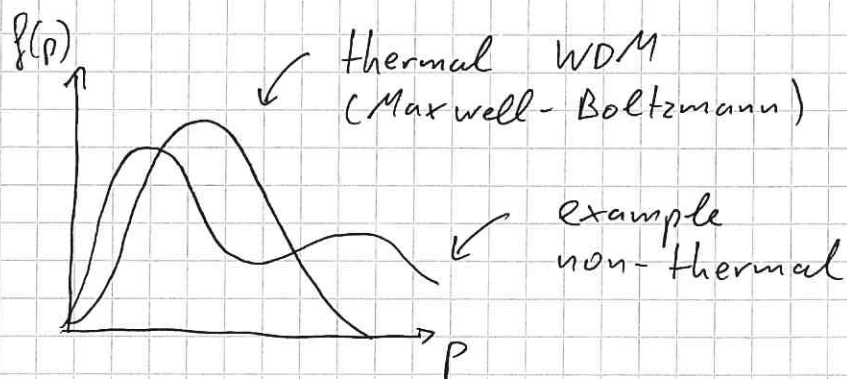 f(p)
thermal WDM
(Maxwell-Boltzmann)
example
non-thermal
p